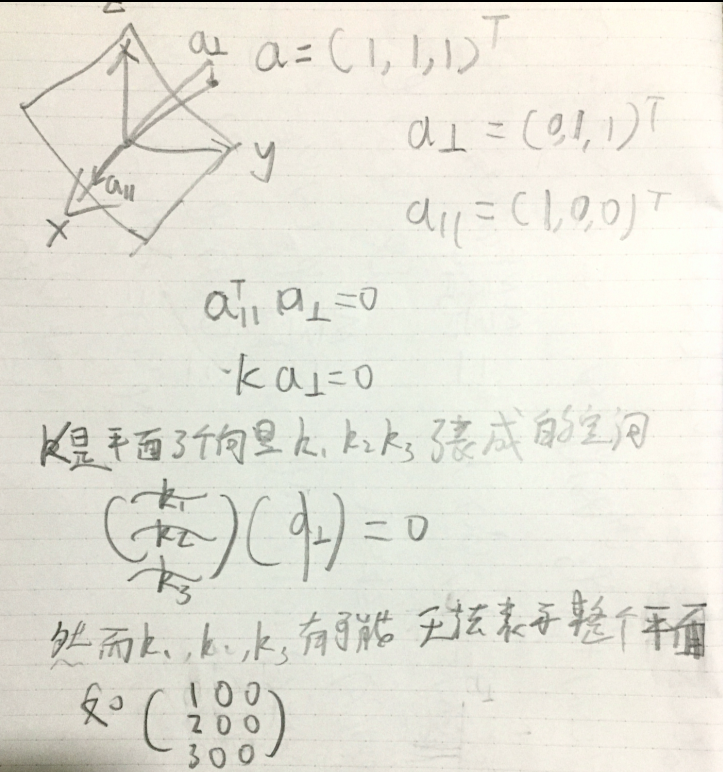 Z
a⊥ a = (1, 1, 1)ᵀ
a⊥ = (0, 1, 1)ᵀ
y
a∥
a∥ = (1, 0, 0)ᵀ
x
a∥ᵀ a⊥ = 0
k a⊥ = 0
k是平面3个向量 k₁ k₂ k₃ 张成的空间
(k₁
k₂
k₃) (a⊥) = 0
然而k₁, k₂, k₃ 有可能 无法表示整个平面
如 (1 0 0
2 0 0
3 0 0)